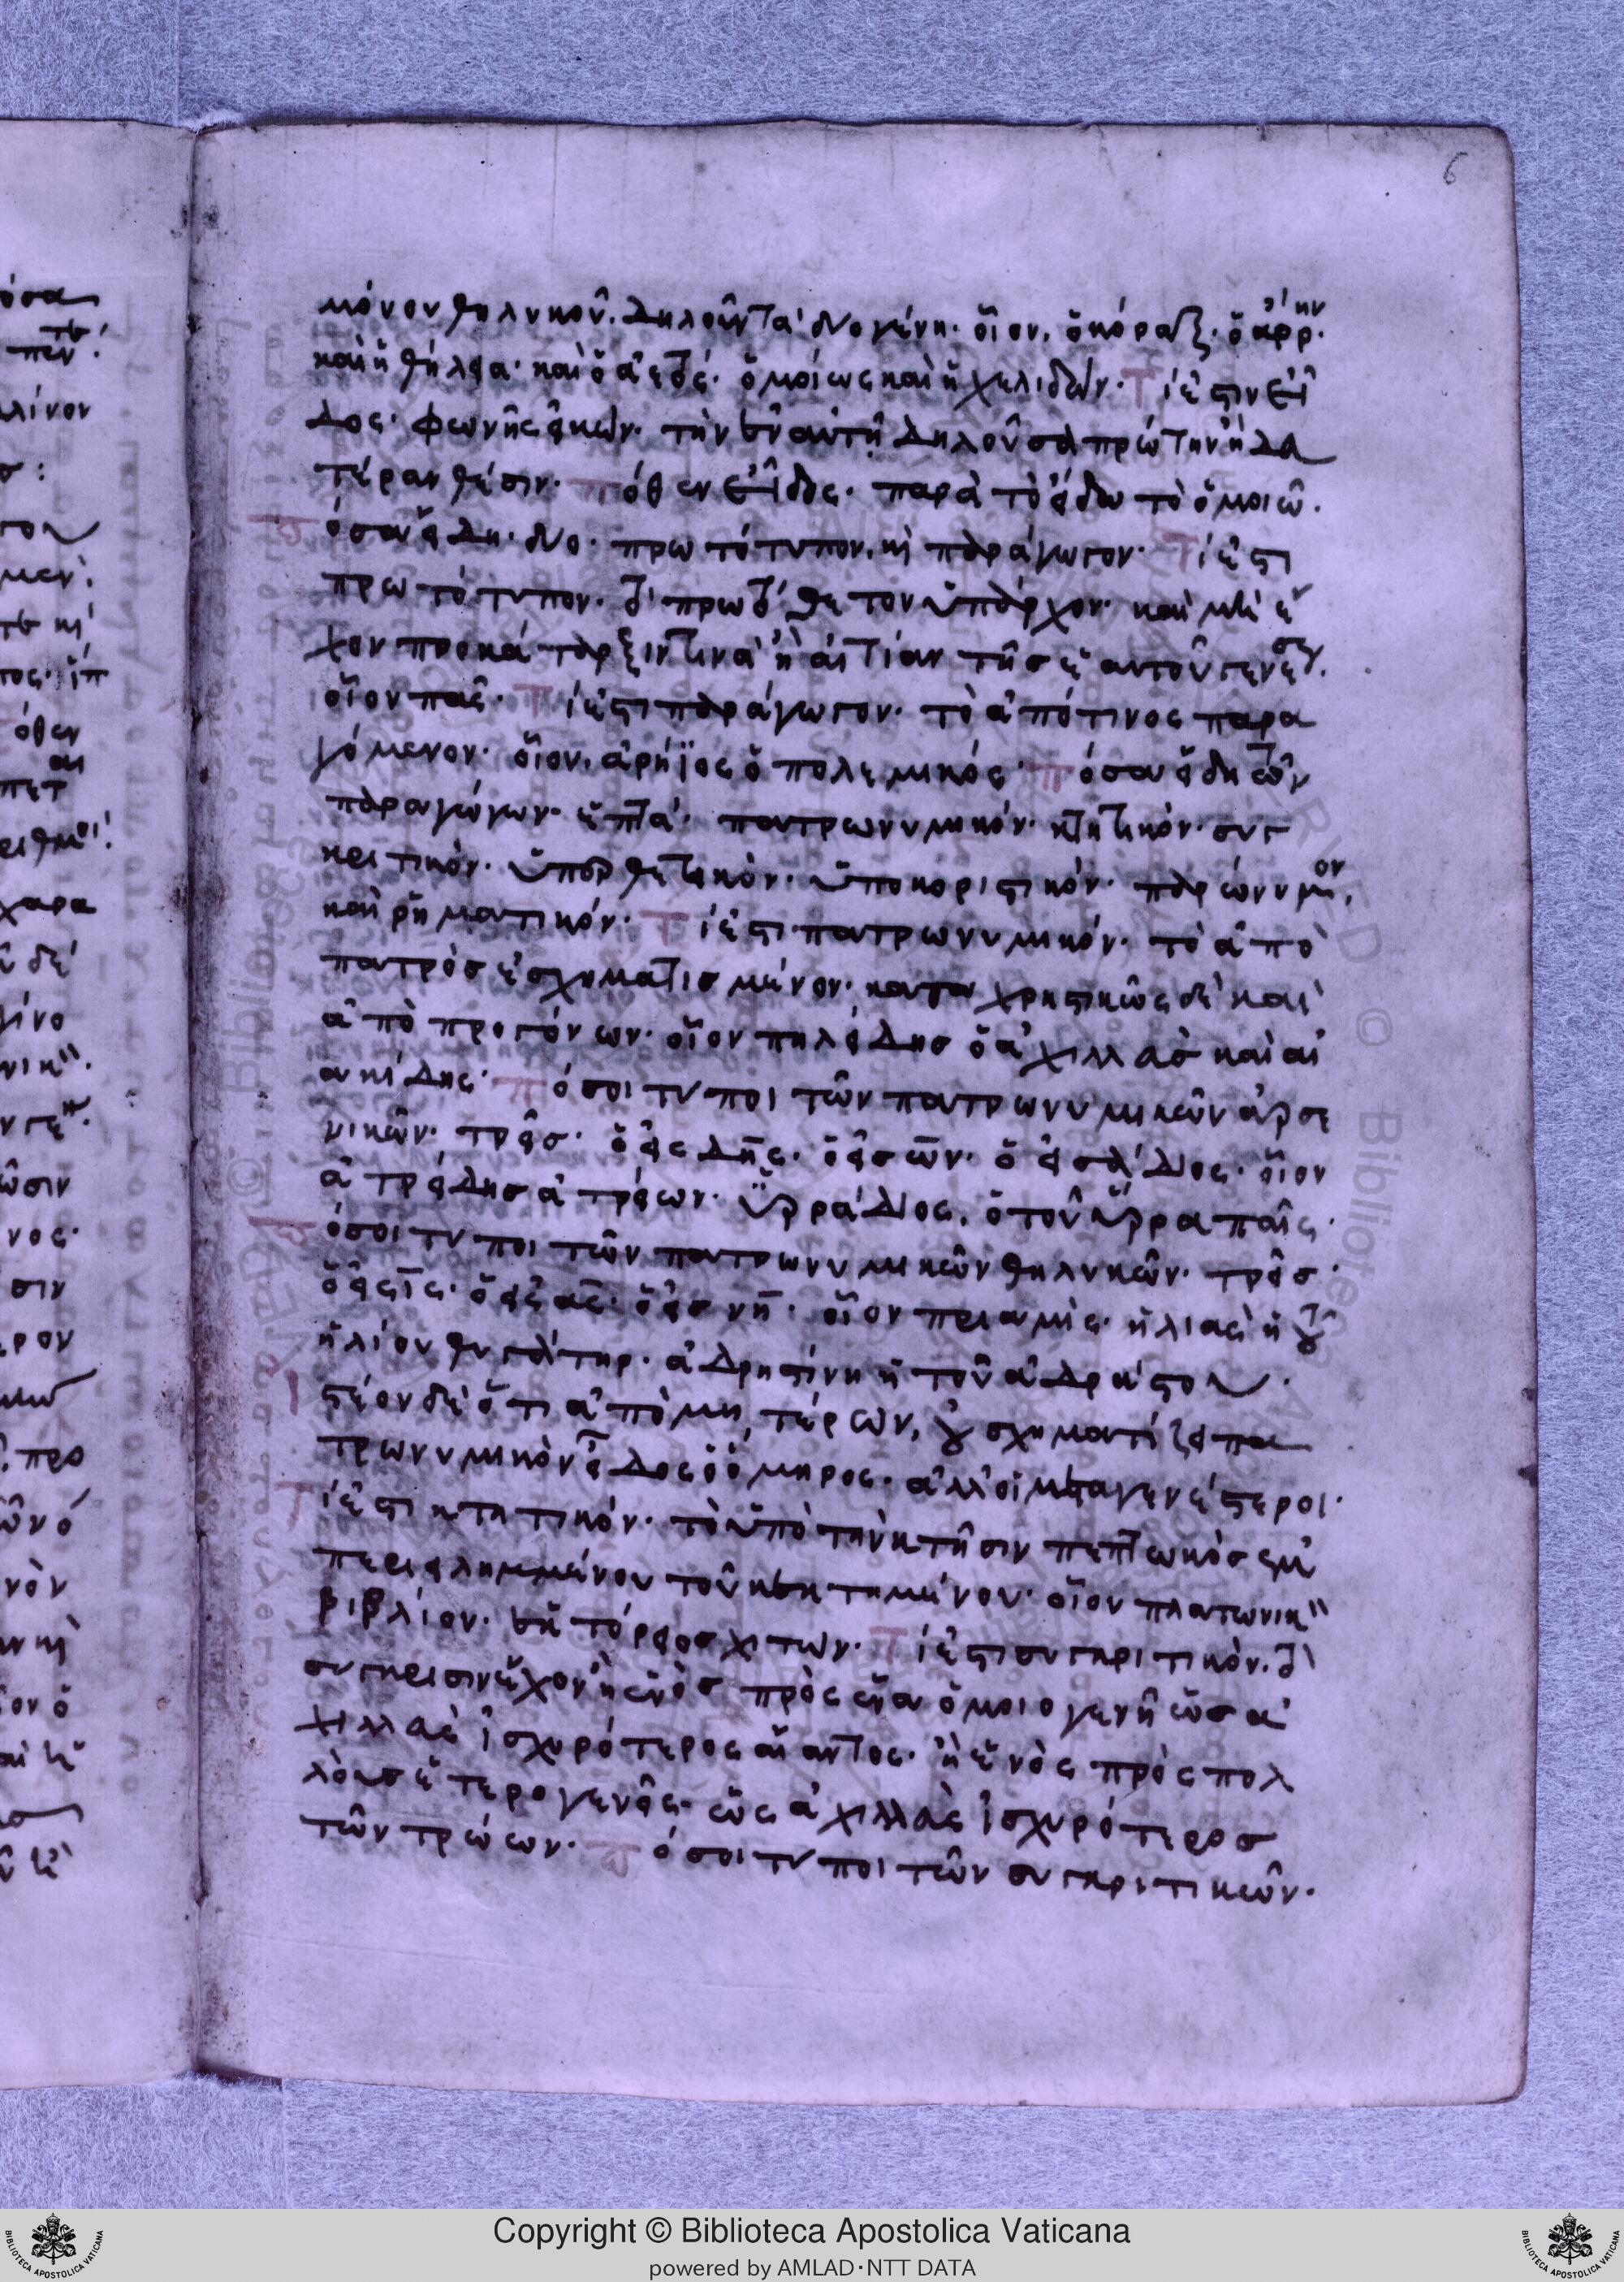 6
μόνον θηλυκοῦ. δηλοῦντα δύο γένη. οἷον, ὁ κόραξ. ὁ ἄρρην
καὶ ἡ θήλεια. καὶ ὁ ἀετός. ὁμοίως καὶ ἡ χελιδών. Τί ἐστιν εἶ
δος. φωνῆς εἰκών. τὴν ἐν αὐτῇ δηλοῦσα πρώτην ἢ δευ
τέραν θέσιν. Πόθεν εἶδος. παρὰ τὸ εἴδω τὸ ὁμοιῶ.
Πόσα εἴδη. δύο. πρωτότυπον. καὶ παράγωγον. Τί ἐστι
πρωτότυπον. τὸ πρωτόθετον ὑπάρχον. καὶ μὴ ἔ
χον προκάταρξιν τινὰ ἢ αἰτίαν τῆς ἑαυτοῦ γενέσεως.
οἷον πᾶς. Τί ἐστι παράγωγον. τὸ ἀπό τινος παρα
γόμενον. οἷον, ἀρήϊος ὁ πολεμικός. Πόσα εἴδη τῶν
παραγώγων. ἑπτά. πατρωνυμικόν. κτητικόν. συγ
κριτικόν. ὑπερθετικόν. ὑποκοριστικόν. παρώνυμον,
καὶ ῥηματικόν. Τί ἐστι πατρωνυμικόν. τὸ ἀπὸ
πατρὸς ἐσχηματισμένον. καταχρηστικῶς δὲ καὶ
ἀπὸ προγόνων. οἷον πηλείδης ὁ ἀχιλλεὺς καὶ αἰ
ακίδης. Πόσοι τύποι τῶν πατρωνυμικῶν ἀρσε
νικῶν. τρεῖς. ὁ εἰς δης. ὁ εἰς ων. ὁ εἰς αδιος. οἷον
ἀτρείδης ἀτρείων. ὑρράδιος, ὁ τοῦ ὕρρα παῖς.
Πόσοι τύποι τῶν πατρωνυμικῶν θηλυκῶν. τρεῖς.
ὁ εἰς ις. ὁ εἰς ας. ὁ εἰς νη. οἷον πριαμίς. ἡλιὰς ἡ τοῦ
ἡλίου θυγάτηρ. ἀδρηστίνη ἡ τοῦ ἀδράστου.
Ἰστέον δὲ ὅτι ἀπὸ μητέρων, οὐ σχηματίζει πα
τρωνυμικὸν εἶδος ὁ ὅμηρος. ἀλλ' οἱ μεταγενέστεροι.
Τί ἐστι κτητικόν. τὸ ὑπὸ τὴν κτῆσιν πεπτωκὸς ἐμ
περιειλημμένου τοῦ κεκτημένου. οἷον πλατωνικὸν
βιβλίον. ἑκτόρειος χιτών. Τί ἐστι συγκριτικόν. τὸ
σύγκρισιν ἔχον ἢ ἑνὸς πρὸς ἕνα ὁμοιογενῆ ὡς ἀ
χιλλεὺς ἰσχυρότερος αἴαντος. ἢ ἑνὸς πρὸς πολ
λοὺς ἑτερογενεῖς. ὡς ἀχιλλεὺς ἰσχυρότερος
τῶν τρώων. Πόσοι τύποι τῶν συγκριτικῶν.
Copyright © Biblioteca Apostolica Vaticana
powered by AMLAD·NTT DATA